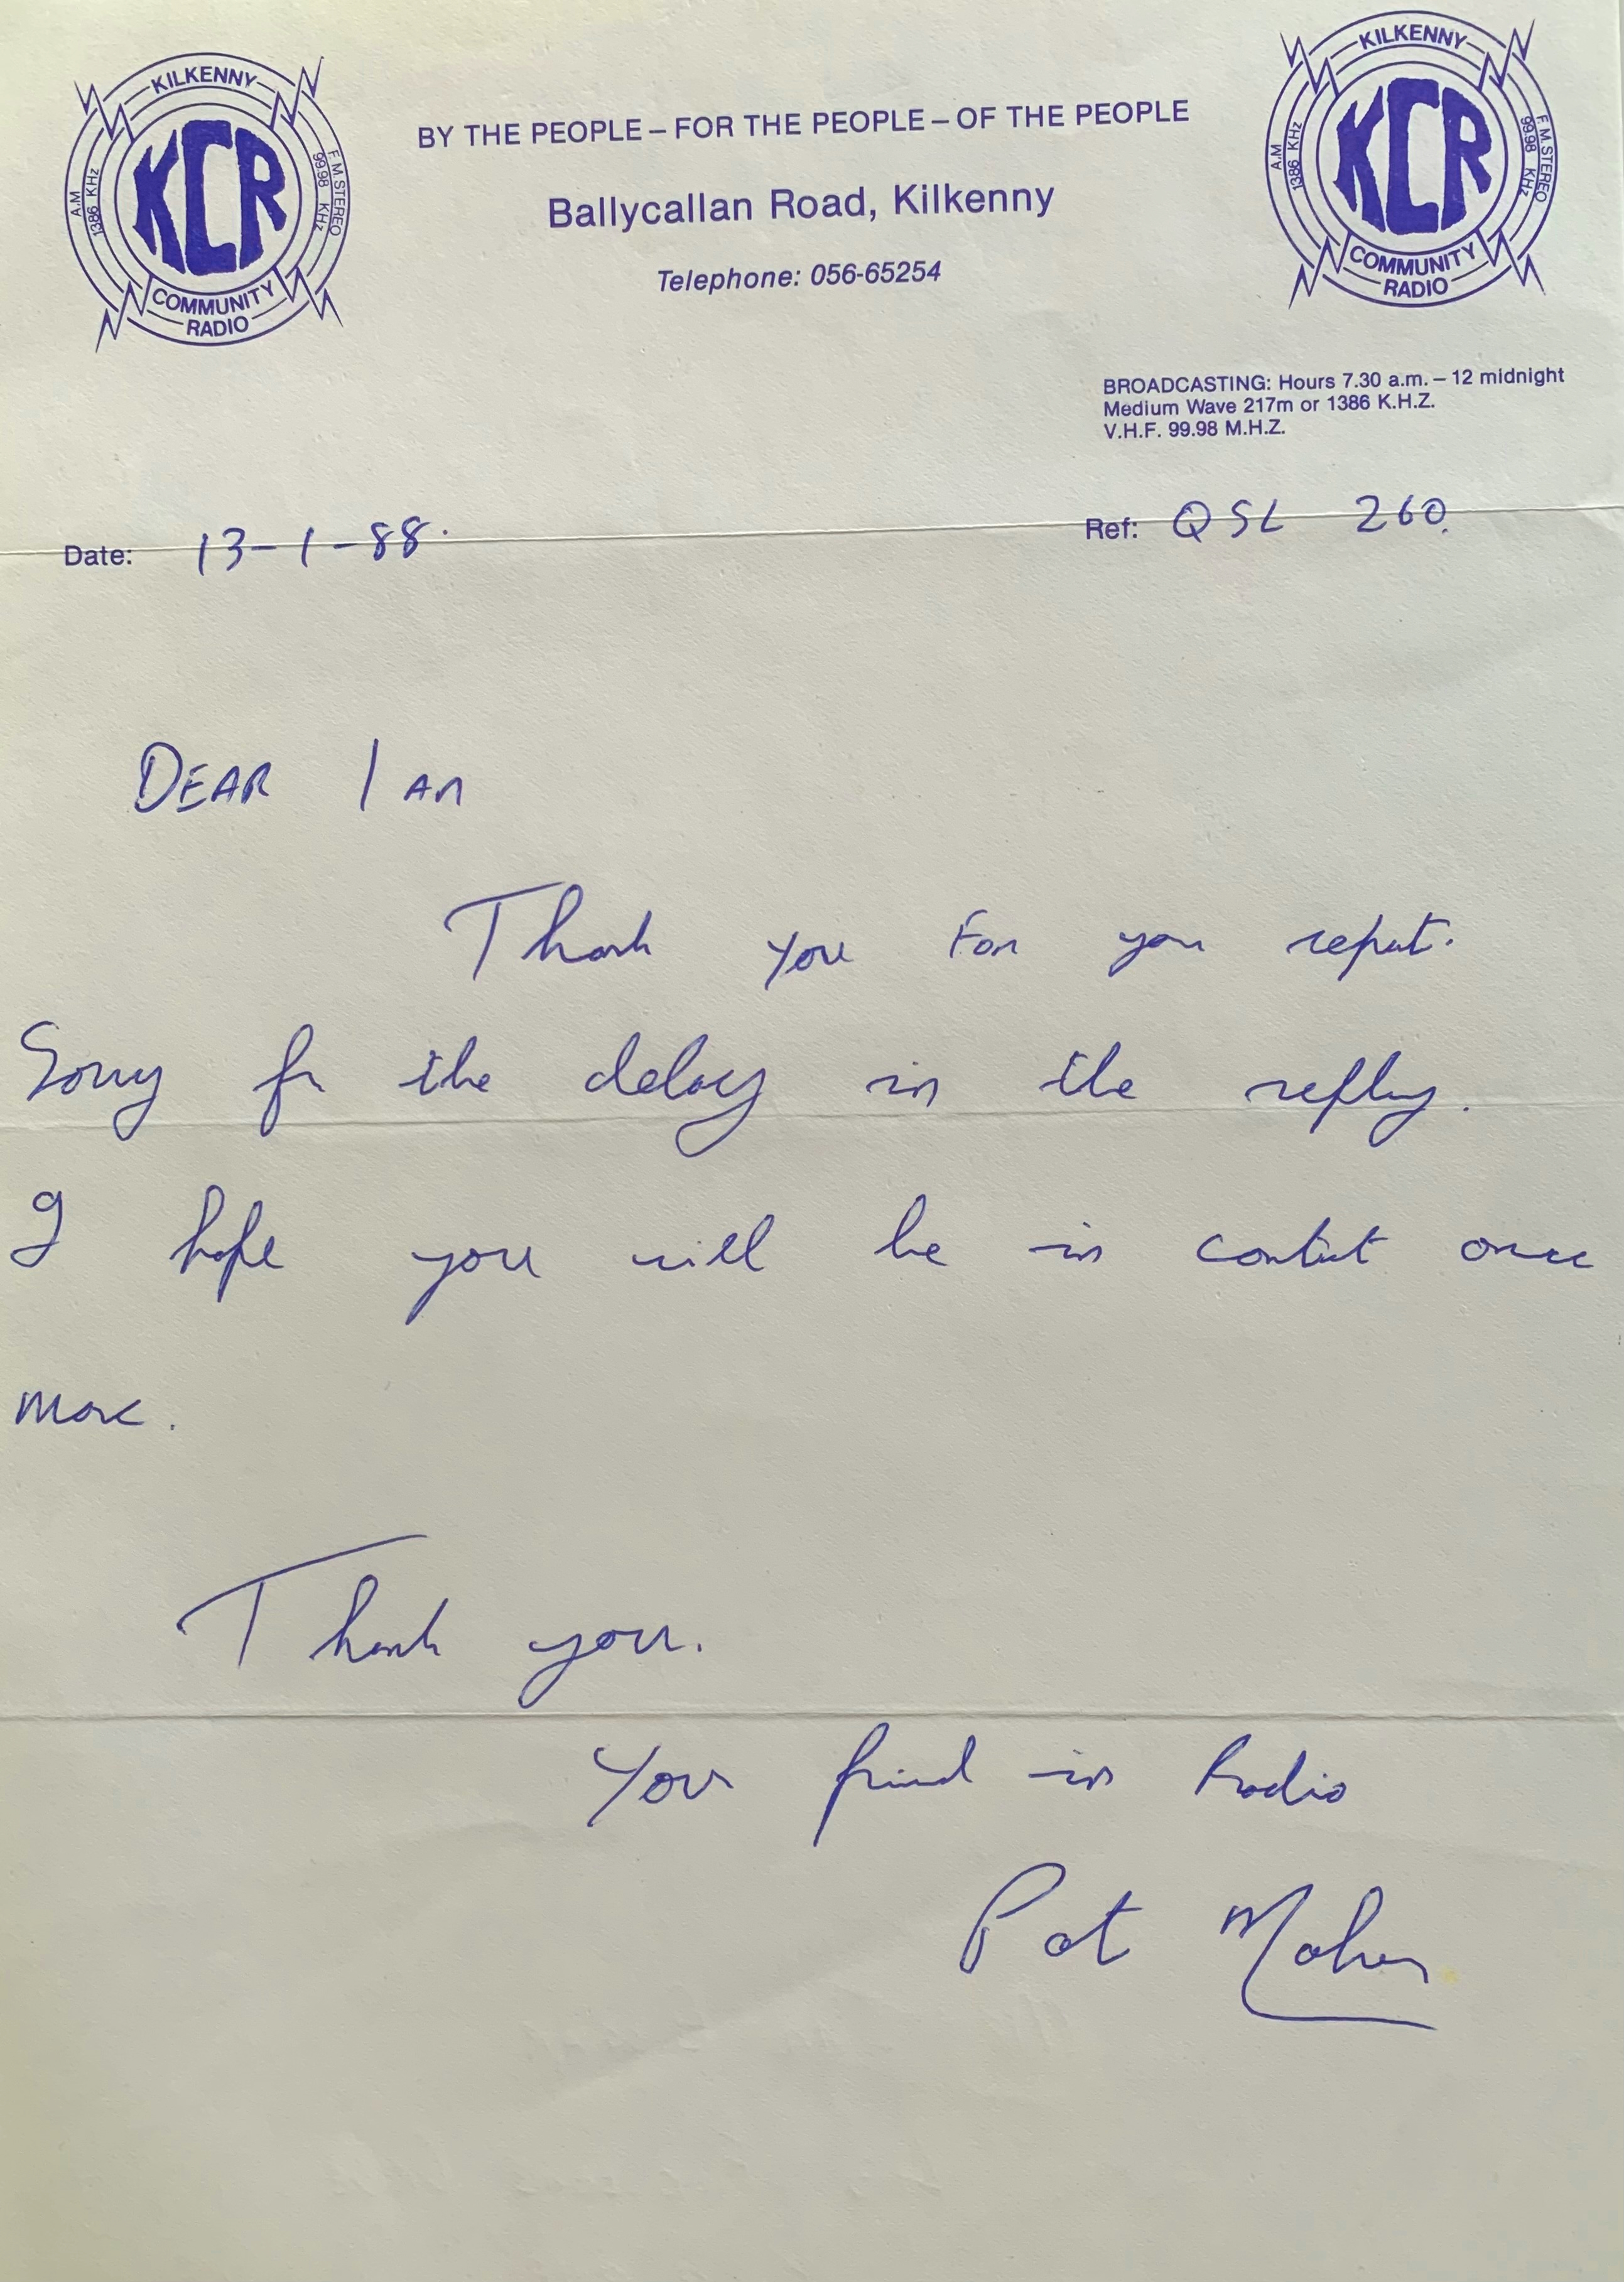 KILKENNY
KCR
COMMUNITY
RADIO
A.M
1386 KHz
F.M.STEREO
99.98 KHz
BY THE PEOPLE – FOR THE PEOPLE – OF THE PEOPLE
Ballycallan Road, Kilkenny
Telephone: 056-65254
KILKENNY
KCR
COMMUNITY
RADIO
A.M
1386 KHz
F.M.STEREO
99.98 KHz
BROADCASTING: Hours 7.30 a.m. – 12 midnight
Medium Wave 217m or 1386 K.H.Z.
V.H.F. 99.98 M.H.Z.
Date: 13-1-88.
Ref: QSL 260.
DEAR IAN
Thank you For you report.
Sorry for the delay in the reply.
I hope you will be in contact once
more.
Thank you.
Your friend in Radio
Pat Maher